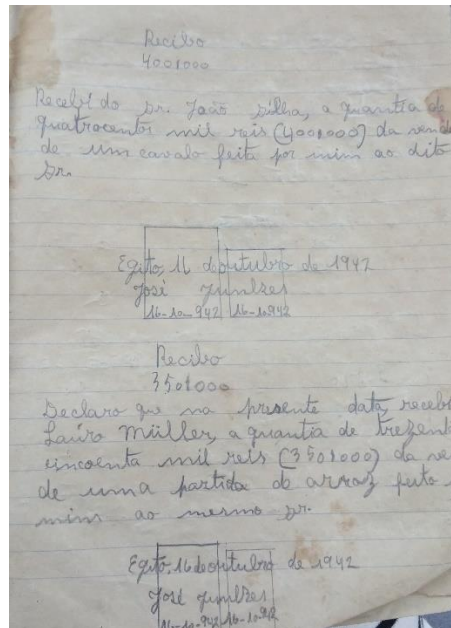 Recibo
400$000
Recebí do Sr. João Silha, a quantia de
quatrocentos mil reis (400$000) da venda
de um cavalo feita por mim ao dito
Sr.
Egito, 16 de outubro de 1942
José
16-10-942 16-10-942
Recibo
350$000
Declaro que na presente data, recebi
Lauro Müller, a quantia de trezent
cincoenta mil reis (350$000) da ve
de uma partida de arroz feita
mim ao mesmo Sr.
Egito, 16 de outubro de 1942
José
16-10-942 16-10-942